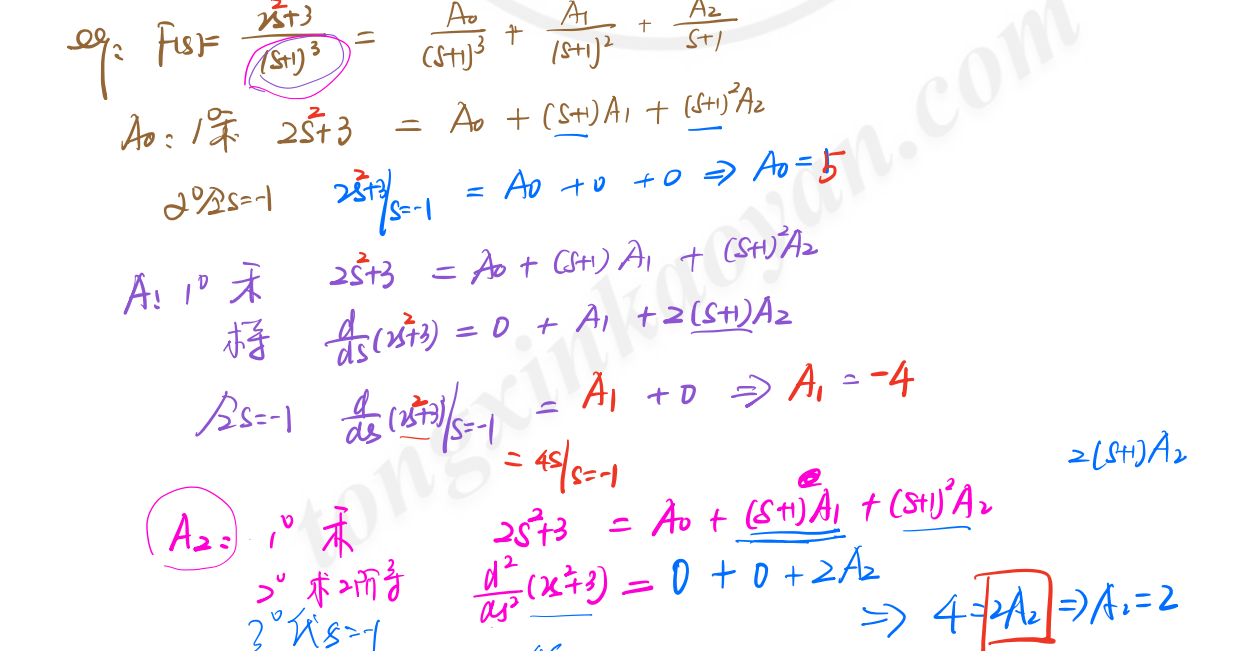 eg: F(s) = (2s²+3)/(s+1)³ = A₀/(s+1)³ + A₁/(s+1)² + A₂/(s+1)
A₀: 1° 乘 2s²+3 = A₀ + (s+1)A₁ + (s+1)²A₂
2° 令s=-1 2s²+3|s=-1 = A₀ + 0 + 0 ⇒ A₀ = 5
A₁ 1° 乘 2s²+3 = A₀ + (s+1)A₁ + (s+1)²A₂
求导 d/ds(2s²+3) = 0 + A₁ + 2(s+1)A₂
令s=-1 d/ds(2s²+3)|s=-1 = A₁ + 0 ⇒ A₁ = -4
= 4s|s=-1
2(s+1)A₂
A₂: 1° 乘 2s²+3 = A₀ + (s+1)A₁ + (s+1)²A₂
2° 求2阶导 d²/ds²(2s²+3) = 0 + 0 + 2A₂
⇒ 4=2A₂ ⇒ A₂=2
3° 代s=-1
tongxinkaoyan.com